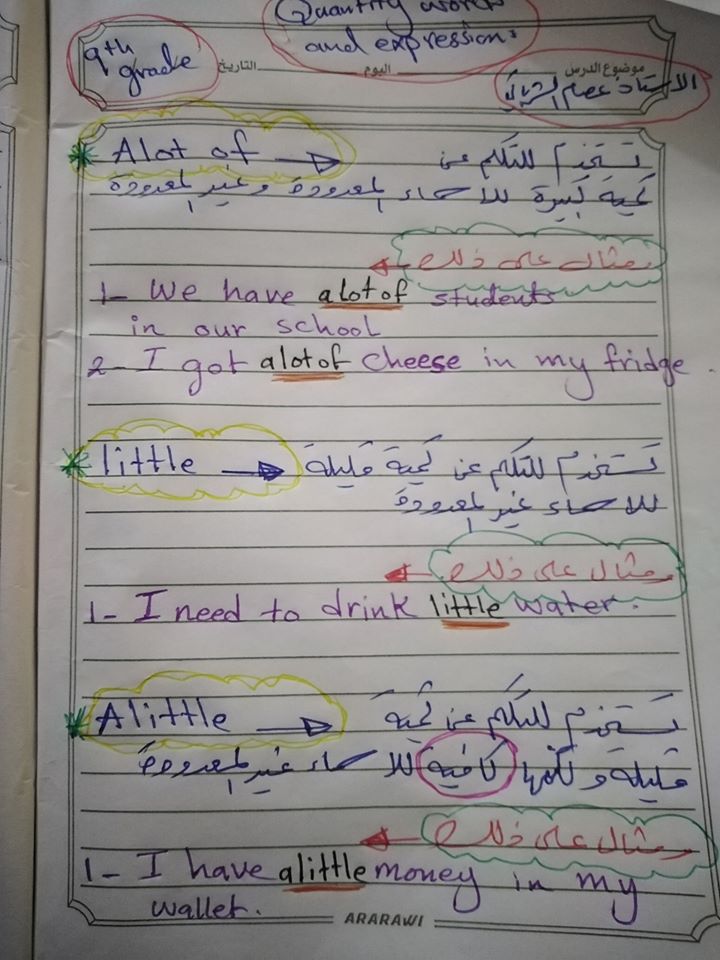 Quantity words
and expressions
9th
grade
موضوع الدرس اليوم التاريخ
الاستاذ عصام
* Alot of → تستخدم للتكلم عن
كمية كبيرة للاسماء المعدودة وغير المعدودة
مثال على ذلك ←
1- We have alot of students
in our school
2- I got alot of cheese in my fridge.
* little → تستخدم للتكلم عن كمية قليلة
للاسماء غير المعدودة
مثال على ذلك ←
1- I need to drink little water.
* Alittle → تستخدم للتكلم عن كمية
قليلة ولكنها كافية للاسماء غير المعدودة
مثال على ذلك ←
1- I have alittle money in my
wallet.
ARARAWI